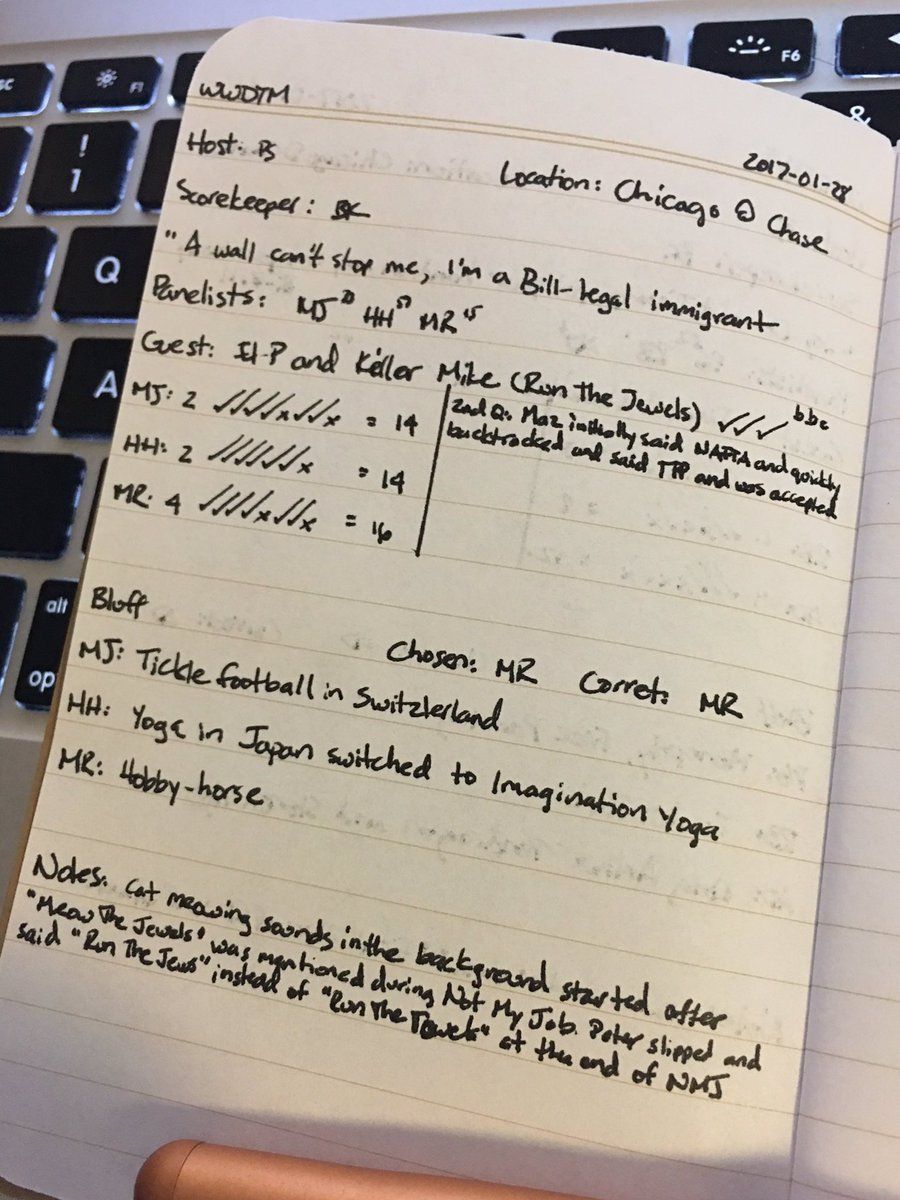 WWDTM
2017-01-28
Host: PS
Location: Chicago @ Chase
Scorekeeper: BK
"A wall can't stop me, I'm a Bill-legal immigrant
Panelists: MJ HH MR
Guest: El-P and Killer Mike (Run The Jewels) ✓✓✓ bbc
MJ: 2 ✓✓✓✓x✓✓x = 14
2nd Q: Maz initially said NAFTA and quickly
HH: 2 ✓✓✓✓✓✓x = 14
backtracked and said TPP and was accepted
MR: 4 ✓✓✓✓x✓✓x = 16
Bluff
Chosen: MR Corret: MR
MJ: Tickle football in Switzlerland
HH: Yoga in Japan switched to Imagination Yoga
MR: Hobby-horse
Notes: Cat meowing sounds in the background started after
"Meow The Jewels" was mentioned during Not My Job. Peter slipped and
said "Run The Jews" instead of "Run The Jewels" at the end of NMJ
F1
F6
!
1
&
Q
A
alt
op